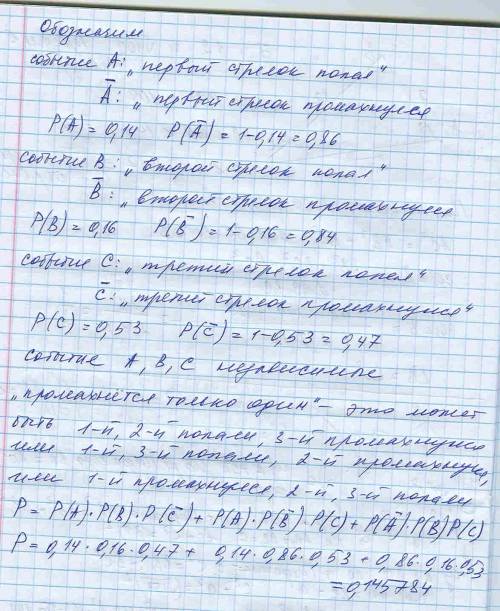 Обозначим
событие A: „первый стрелок попал“
Ā: „первый стрелок промахнулся
P(A) = 0,14 P(Ā) = 1-0,14 = 0,86
событие B: „второй стрелок попал“
B̄: „второй стрелок промахнулся
P(B) = 0,16 P(B̄) = 1-0,16 = 0,84
событие C: „третий стрелок попал“
C̄: „третий стрелок промахнулся“
P(C) = 0,53 P(C̄) = 1-0,53 = 0,47
событие A, B, C независимые
„промахнётся только один“ – это может
быть 1-й, 2-й попали, 3-й промахнулся
или 1-й, 3-й попали, 2-й промахнулся,
или 1-й промахнулся, 2-й, 3-й попали
P = P(A)·P(B)·P(C̄) + P(A)·P(B̄)·P(C) + P(Ā)·P(B)P(C)
P = 0,14·0,16·0,47 + 0,14·0,86·0,53 + 0,86·0,16·0,53
= 0,145784